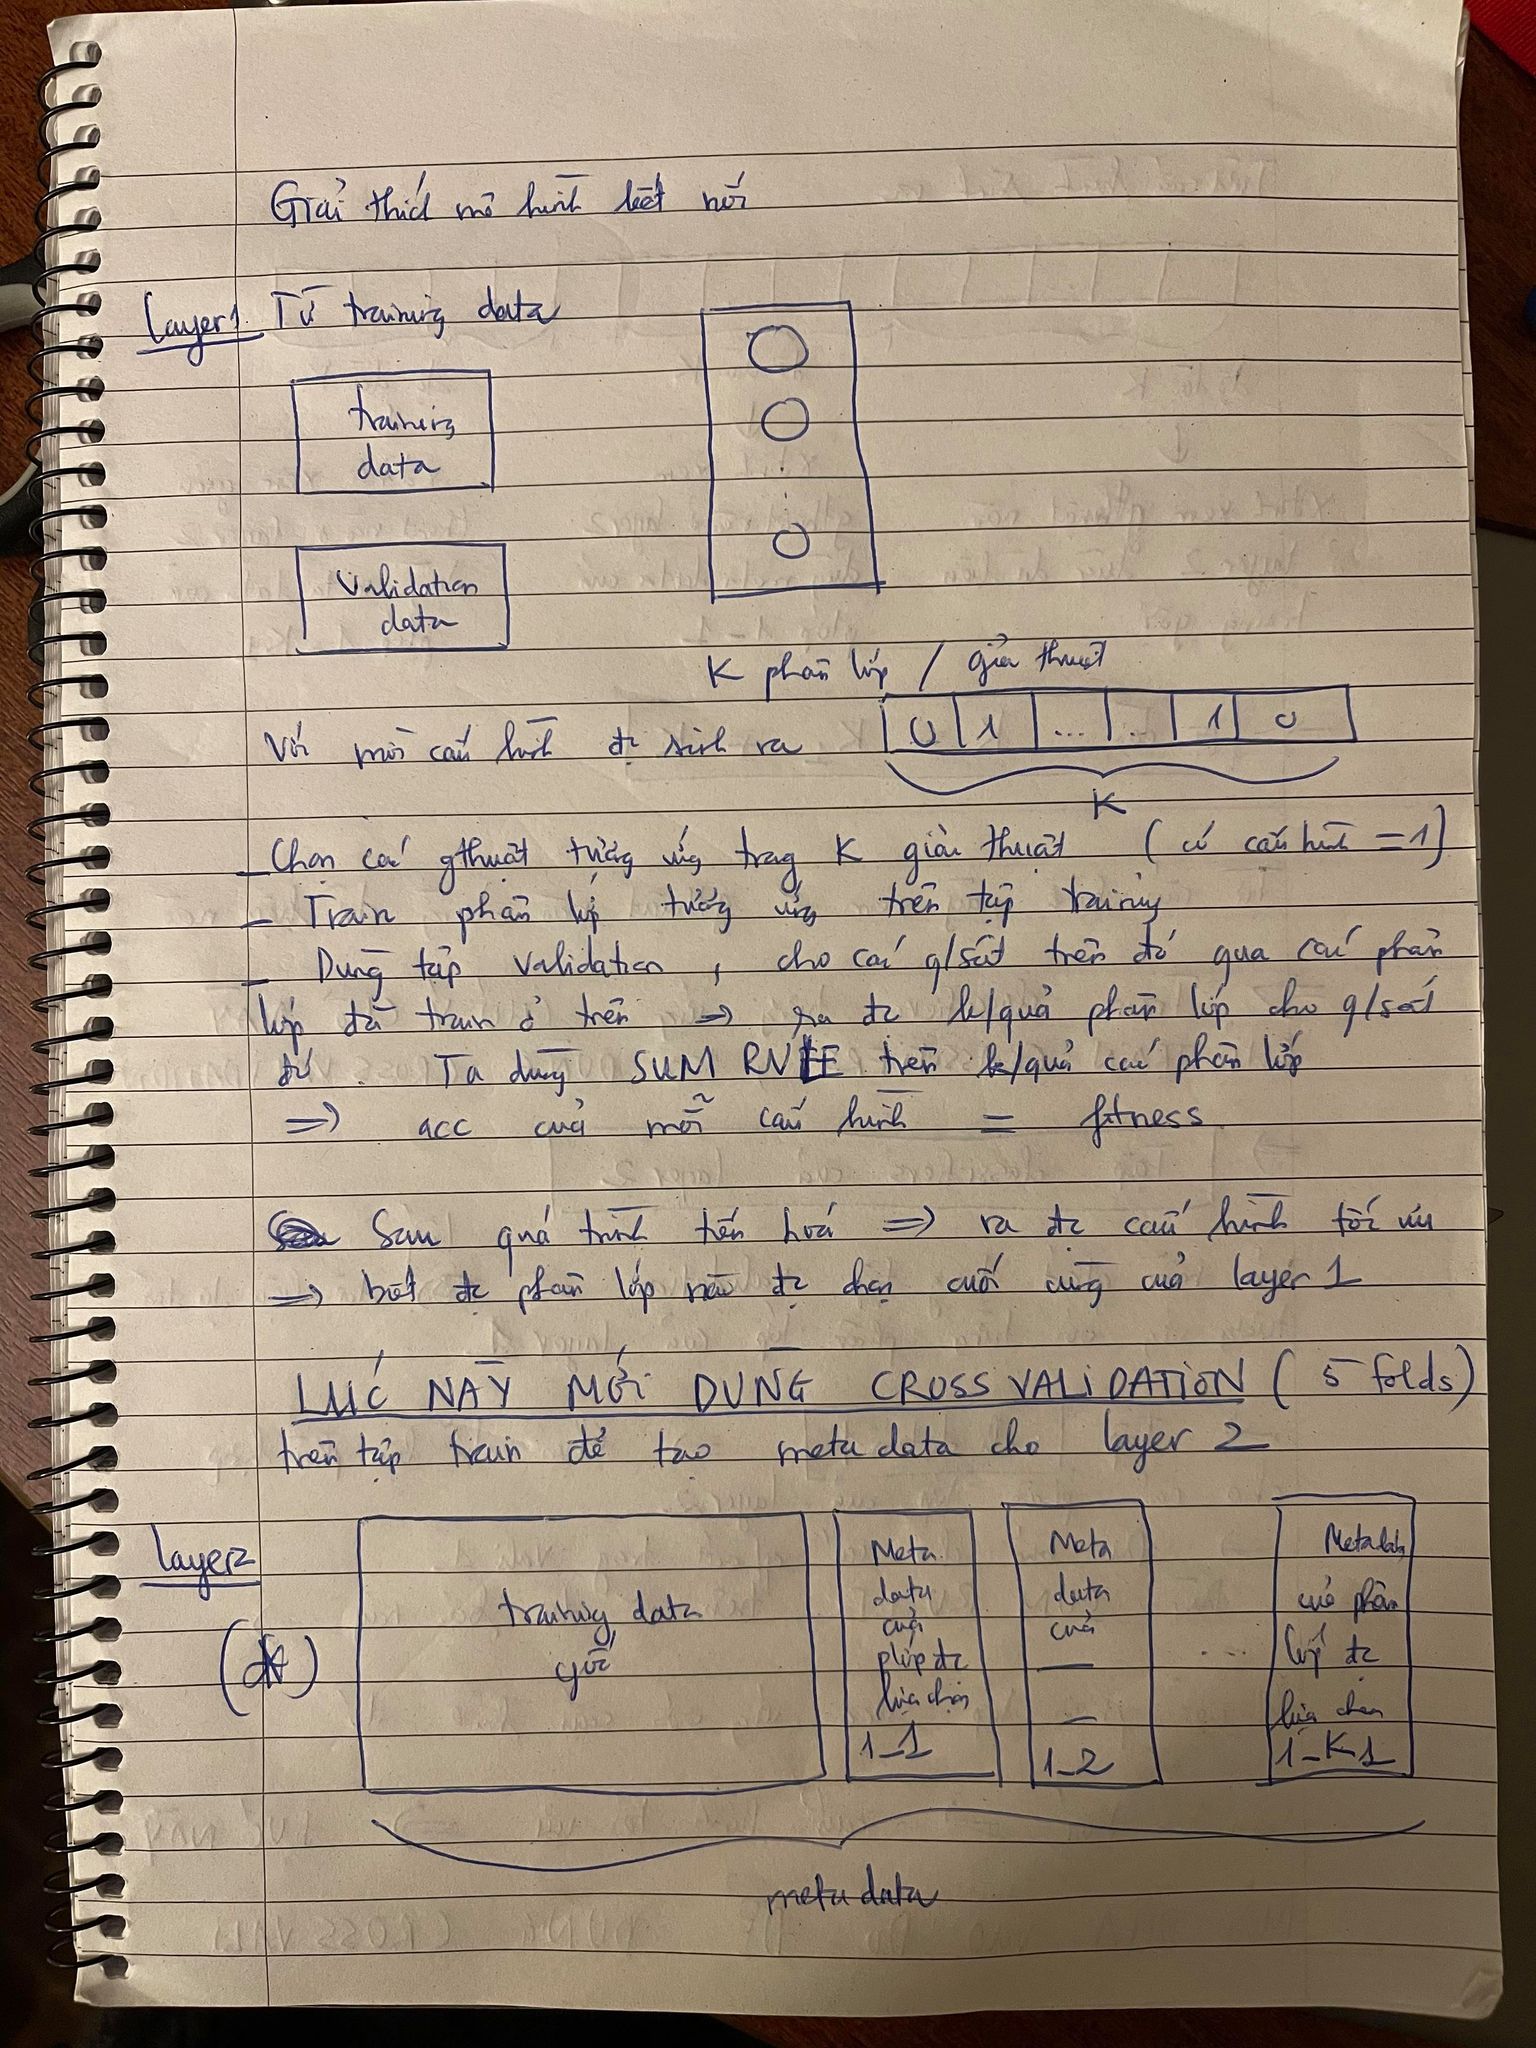 Giải thích mô hình kết nối
Layer 1 Từ training data
training
data
Validation
data
K phân lớp / giải thuật
Với mỗi cấu hình đc sinh ra 0 1 ... .. 1 0
K
- Chọn các gthuật tương ứng trong K giải thuật (có cấu hình = 1)
- Train phân lớp tương ứng trên tập training
- Dùng tập validation, cho các q/sát trên đó qua các phân
lớp đã train ở trên => ra đc k/quả phân lớp cho q/sát
đó. Ta dùng SUM RULE trên k/quả các phân lớp
=> acc của mỗi cấu hình = fitness
Sau quá trình tiến hoá => ra đc cấu hình tối ưu
=> biết đc phân lớp nào đc chọn cuối cùng của layer 1
LÚC NÀY MỚI DÙNG CROSS VALIDATION (5 folds)
trên tập train để tạo meta data cho layer 2
Layer 2
training data
gốc
Meta
data
của
plớp đc
lựa chọn
1_1
Meta
data
của
—
—
1_2
...
Meta data
của phân
lớp đc
lựa chọn
1_K1
meta data